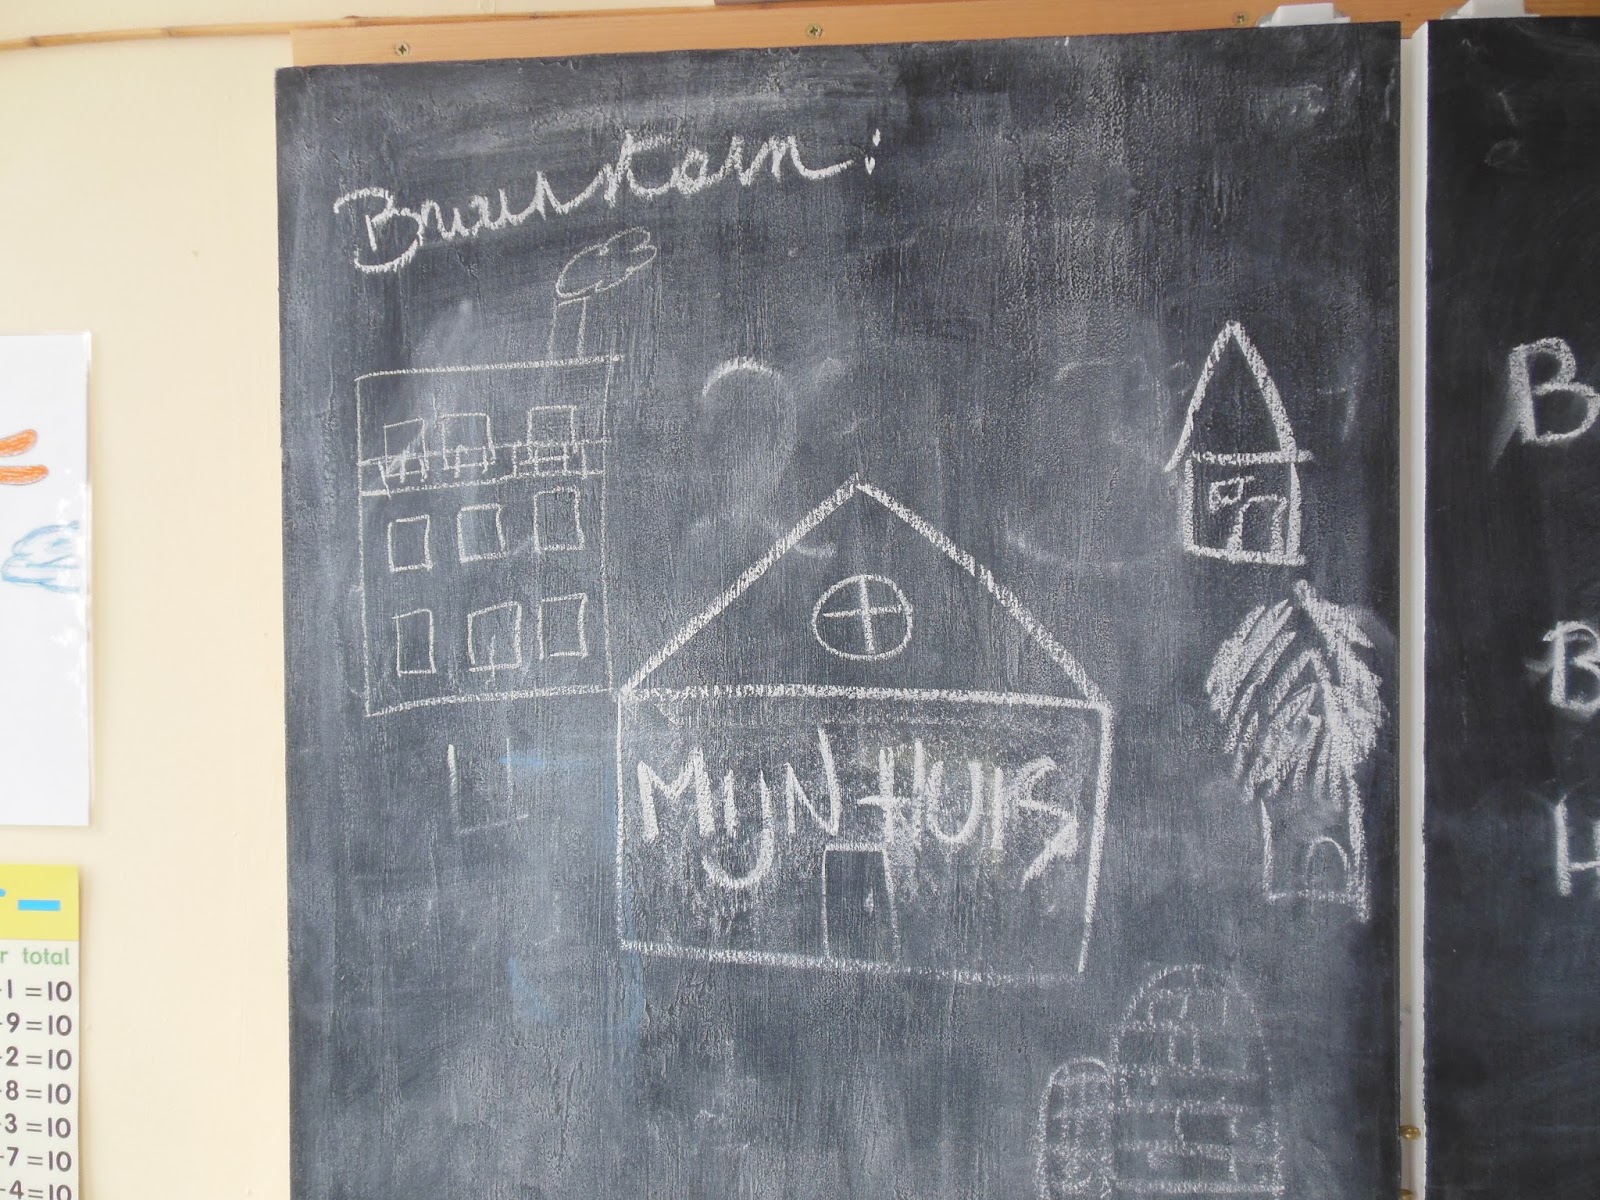 Brainstorm:
MIJN HUIS
B
B
total
1 = 10
9 = 10
2 = 10
8 = 10
3 = 10
7 = 10
4 = 10